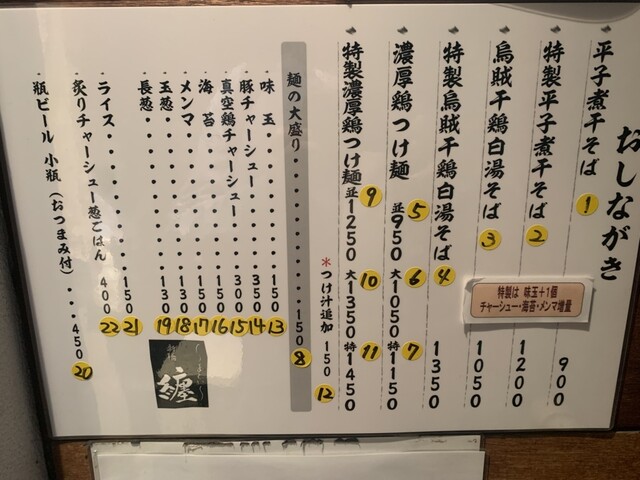 おしながき
平子煮干そば 1 900
特製平子煮干そば 2 1200
烏賊干鶏白湯そば 3 1050
特製烏賊干鶏白湯そば 4 1350
特製は 味玉+1個
チャーシュー・海苔・メンマ増量
濃厚鶏つけ麺 並950 5 大1050 6 特1150 7
特製濃厚鶏つけ麺 並1250 9 大1350 10 特1450 11
*つけ汁追加 150 12
麺の大盛り・・・・・・・・・150 8
味玉・・・・・・・・150 13
豚チャーシュー・・・・350 14
真空鶏チャーシュー・・・300 15
海苔・・・・・・・・150 16
メンマ・・・・・・・150 17
玉葱・・・・・・・・130 18
長葱・・・・・・・・130 19
ライス・・・・・・・・150 21
炙りチャーシュー葱ごはん 400 22
瓶ビール 小瓶(おつまみ付)・・・450 20
纏